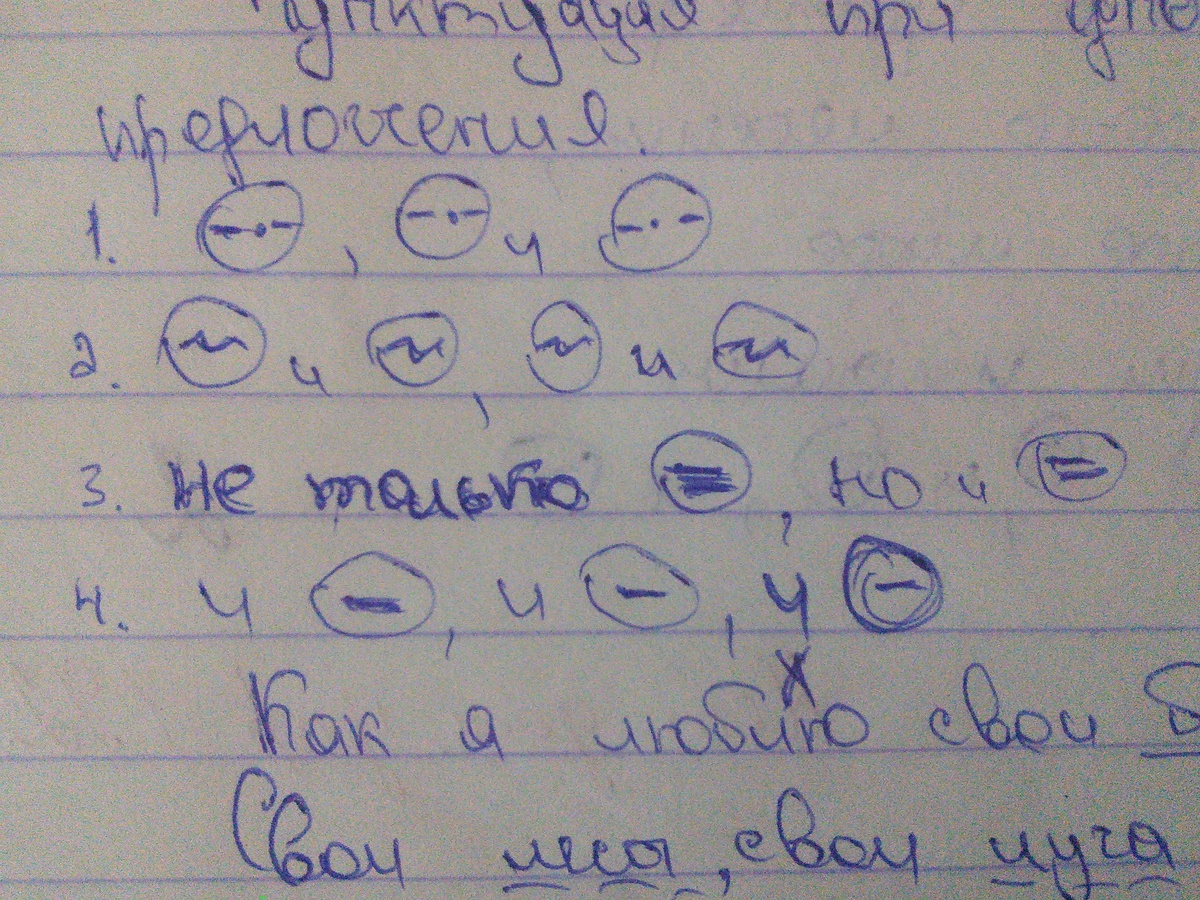 Пунктуация при
предложения.
1. , и
2. и , и
3. не только , но и
4. и , и , и
Как я люблю свои
Свои леса, свои луга